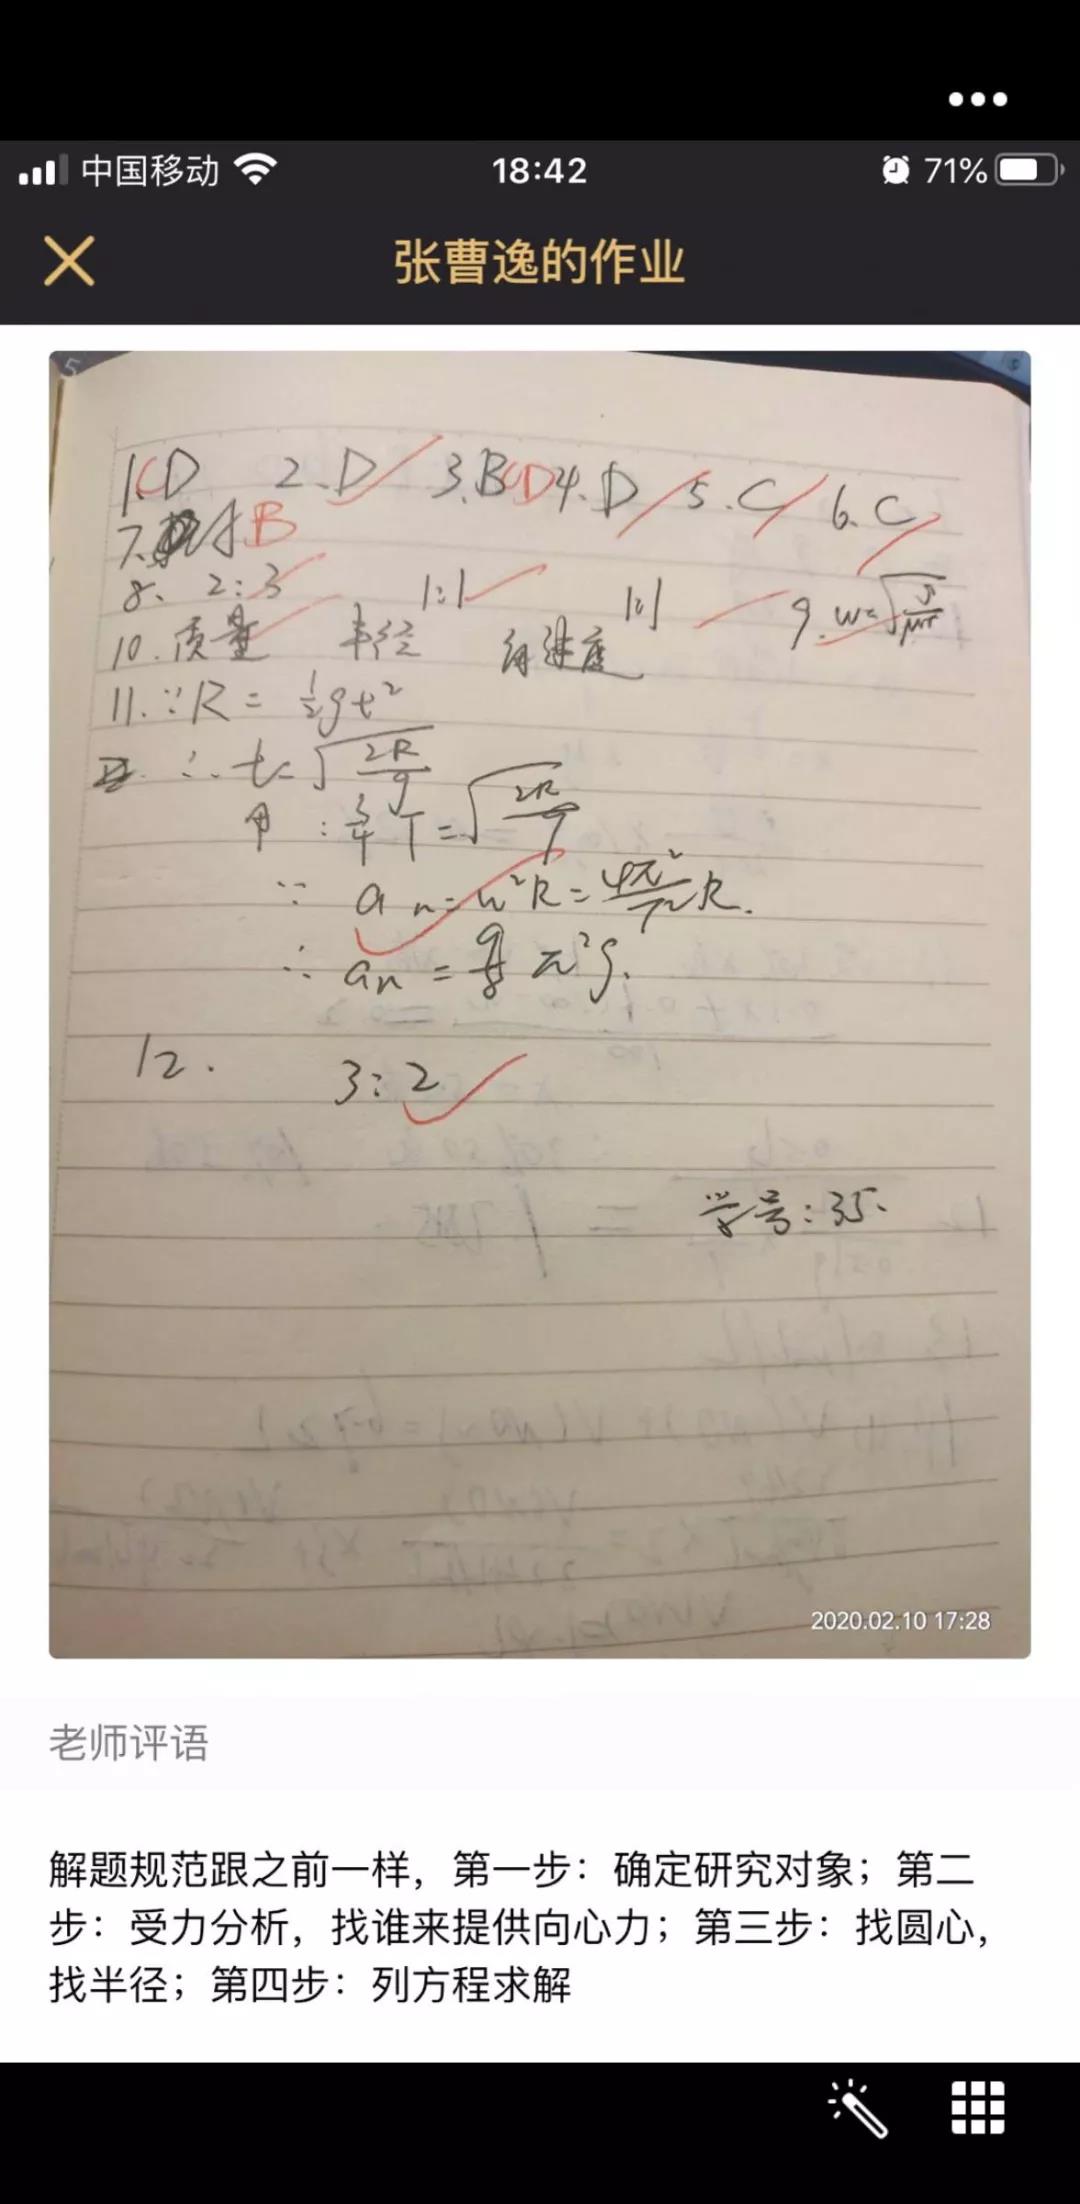 中国移动 18:42 71%
张曹逸的作业
1.CD 2.D 3.BCD 4.D 5.C 6.C
7. B
8. 2:3 1:1 1:1 9. w=√(g/μr)
10. 质量 半径 角速度
11. ∵R = ½gt²
∴ t=√(2R/g)
甲 : ¾T=√(2R/g)
∵ an=w²R=4π²/T²R.
∴ an = 9/8 π²g.
12. 3:2
学号:35.
2020.02.10 17:28
老师评语
解题规范跟之前一样，第一步：确定研究对象；第二
步：受力分析，找谁来提供向心力；第三步：找圆心，
找半径；第四步：列方程求解